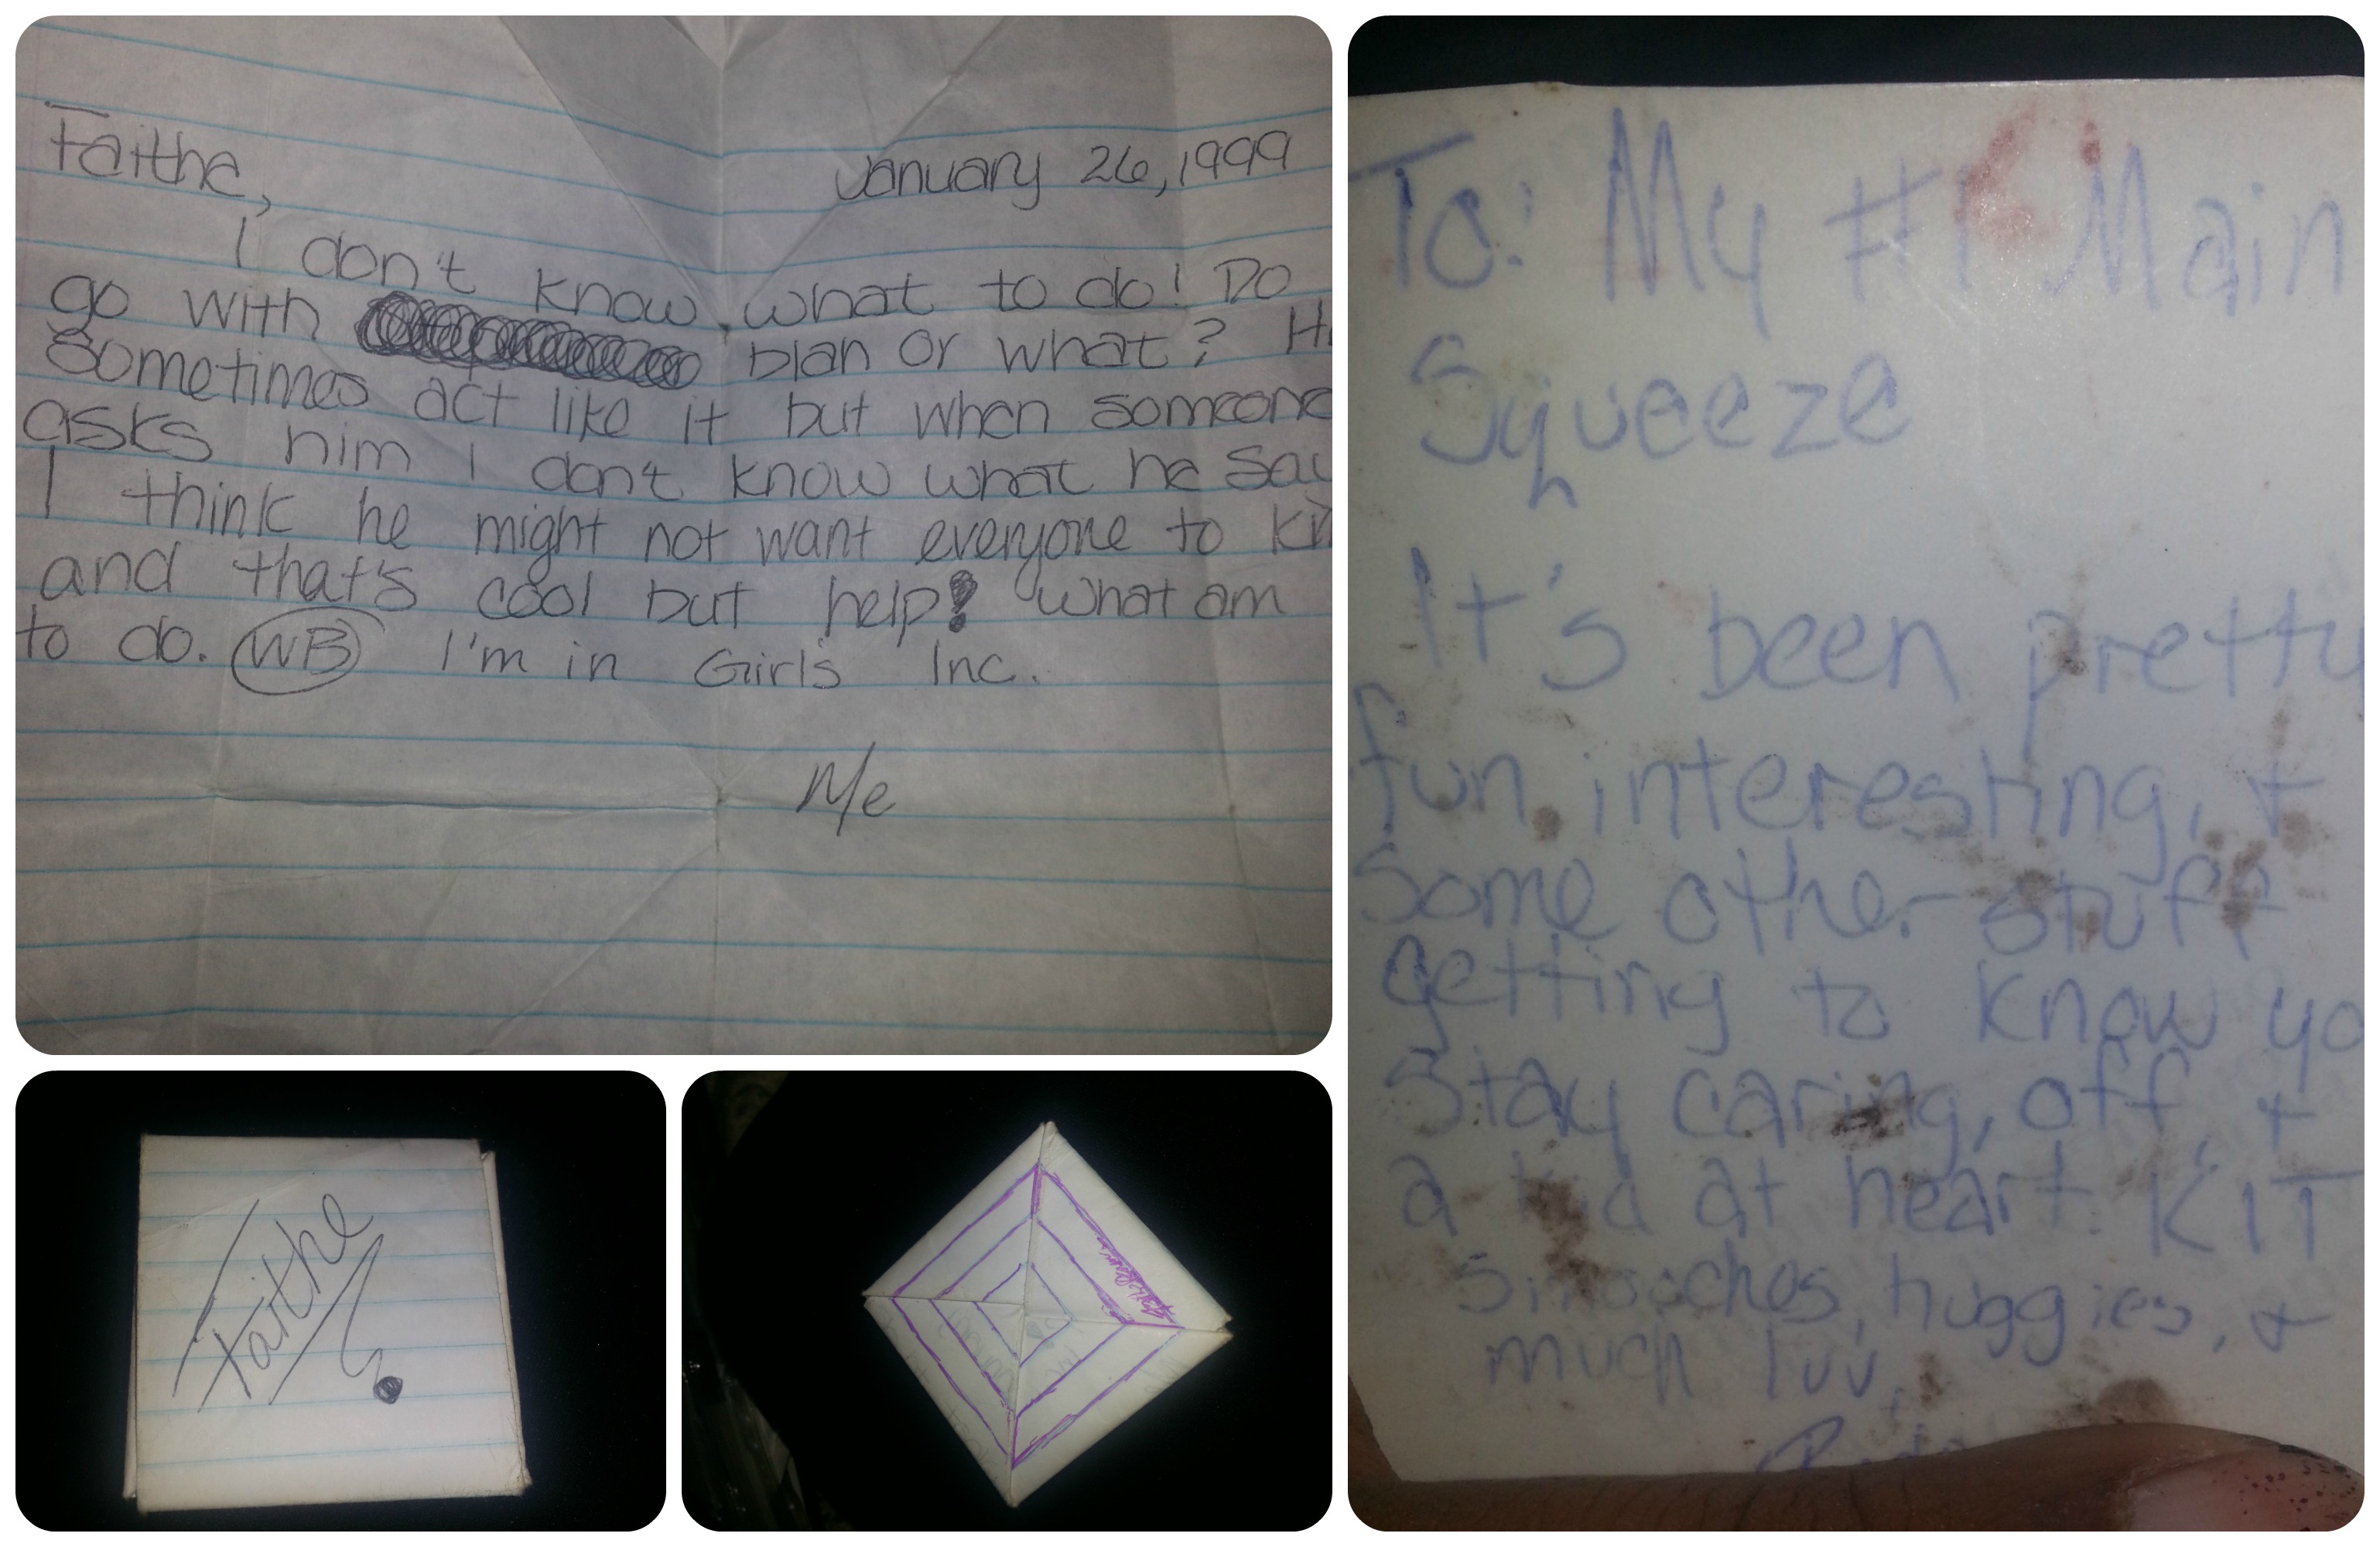 Faithe,
January 26, 1999
I don't know what to do! Do
go with blan or what? H
Sometimes act like it but when someone
asks him I don't know what he say
I think he might not want everyone to kn
and that's cool but help! What am
to do. WB I'm in Girls Inc.
Me
Faithe
To: My #1 Main
Squeeze
It's been pretty
fun, interesting, +
some other stuff
getting to know yo
Stay caring, off, +
a kid at heart. KIT
Smooches, huggies, +
much luv,